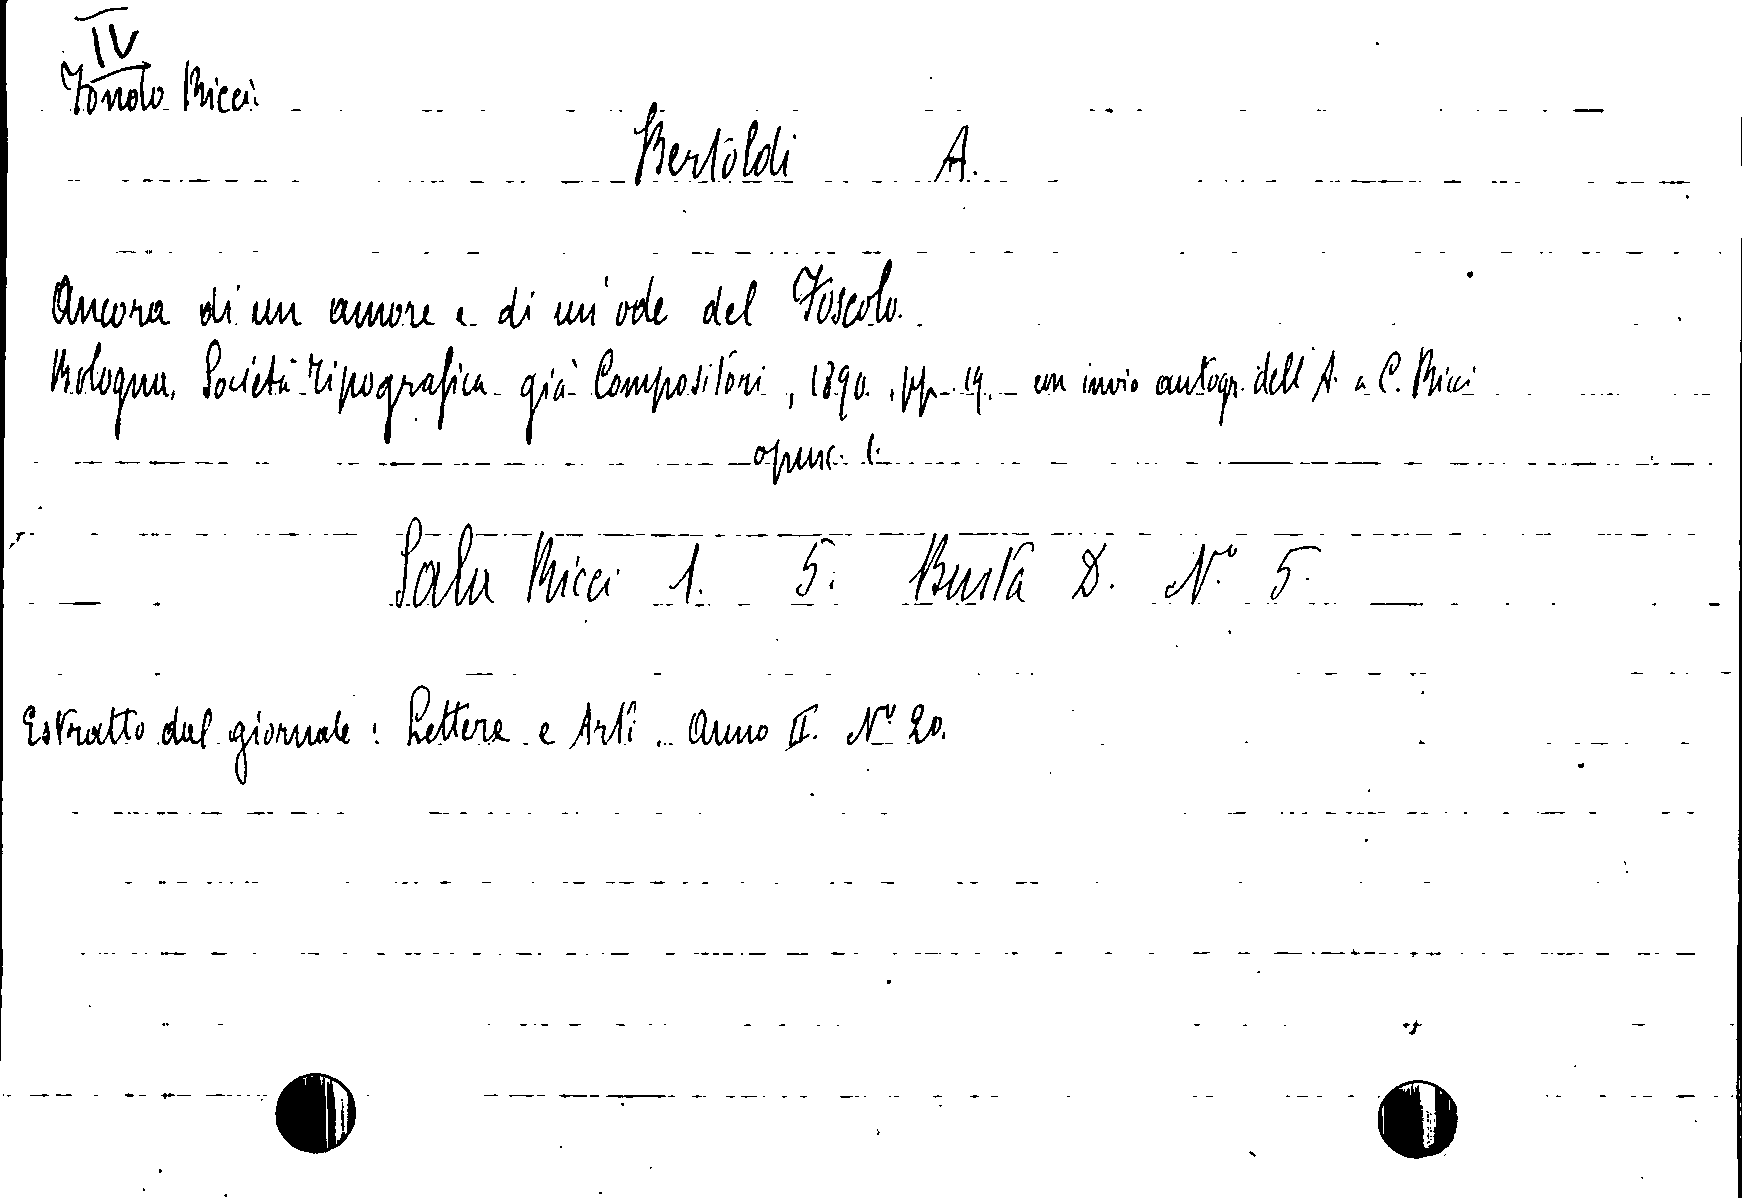 IV
Fondo Ricci
Bertoldi A.
Ancora di un amore e di un'ode del Foscolo.
Bologna, Società Tipografica già Compositori, 1890. pp. 19. con invio autogr. dell'A. a C. Ricci
opusc. 1.
Sala Ricci 1. 5. Busta D. N.º 5.
Estratto dal giornale: Lettere e Arti. Anno II. Nº 20.